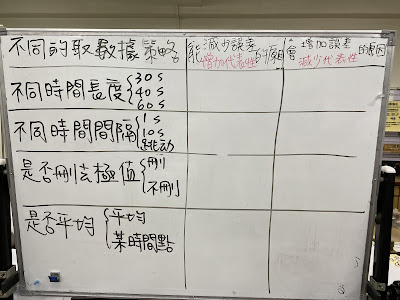 不同的取數據策略
能 減少誤差 的原因
增加代表性
會 增加誤差 的原因
減少代表性
不同時間長度 30s
40s
60s
不同時間間隔 1s
10s
跳動
是否刪去極值 刪
不刪
是否平均 平均
某時間點